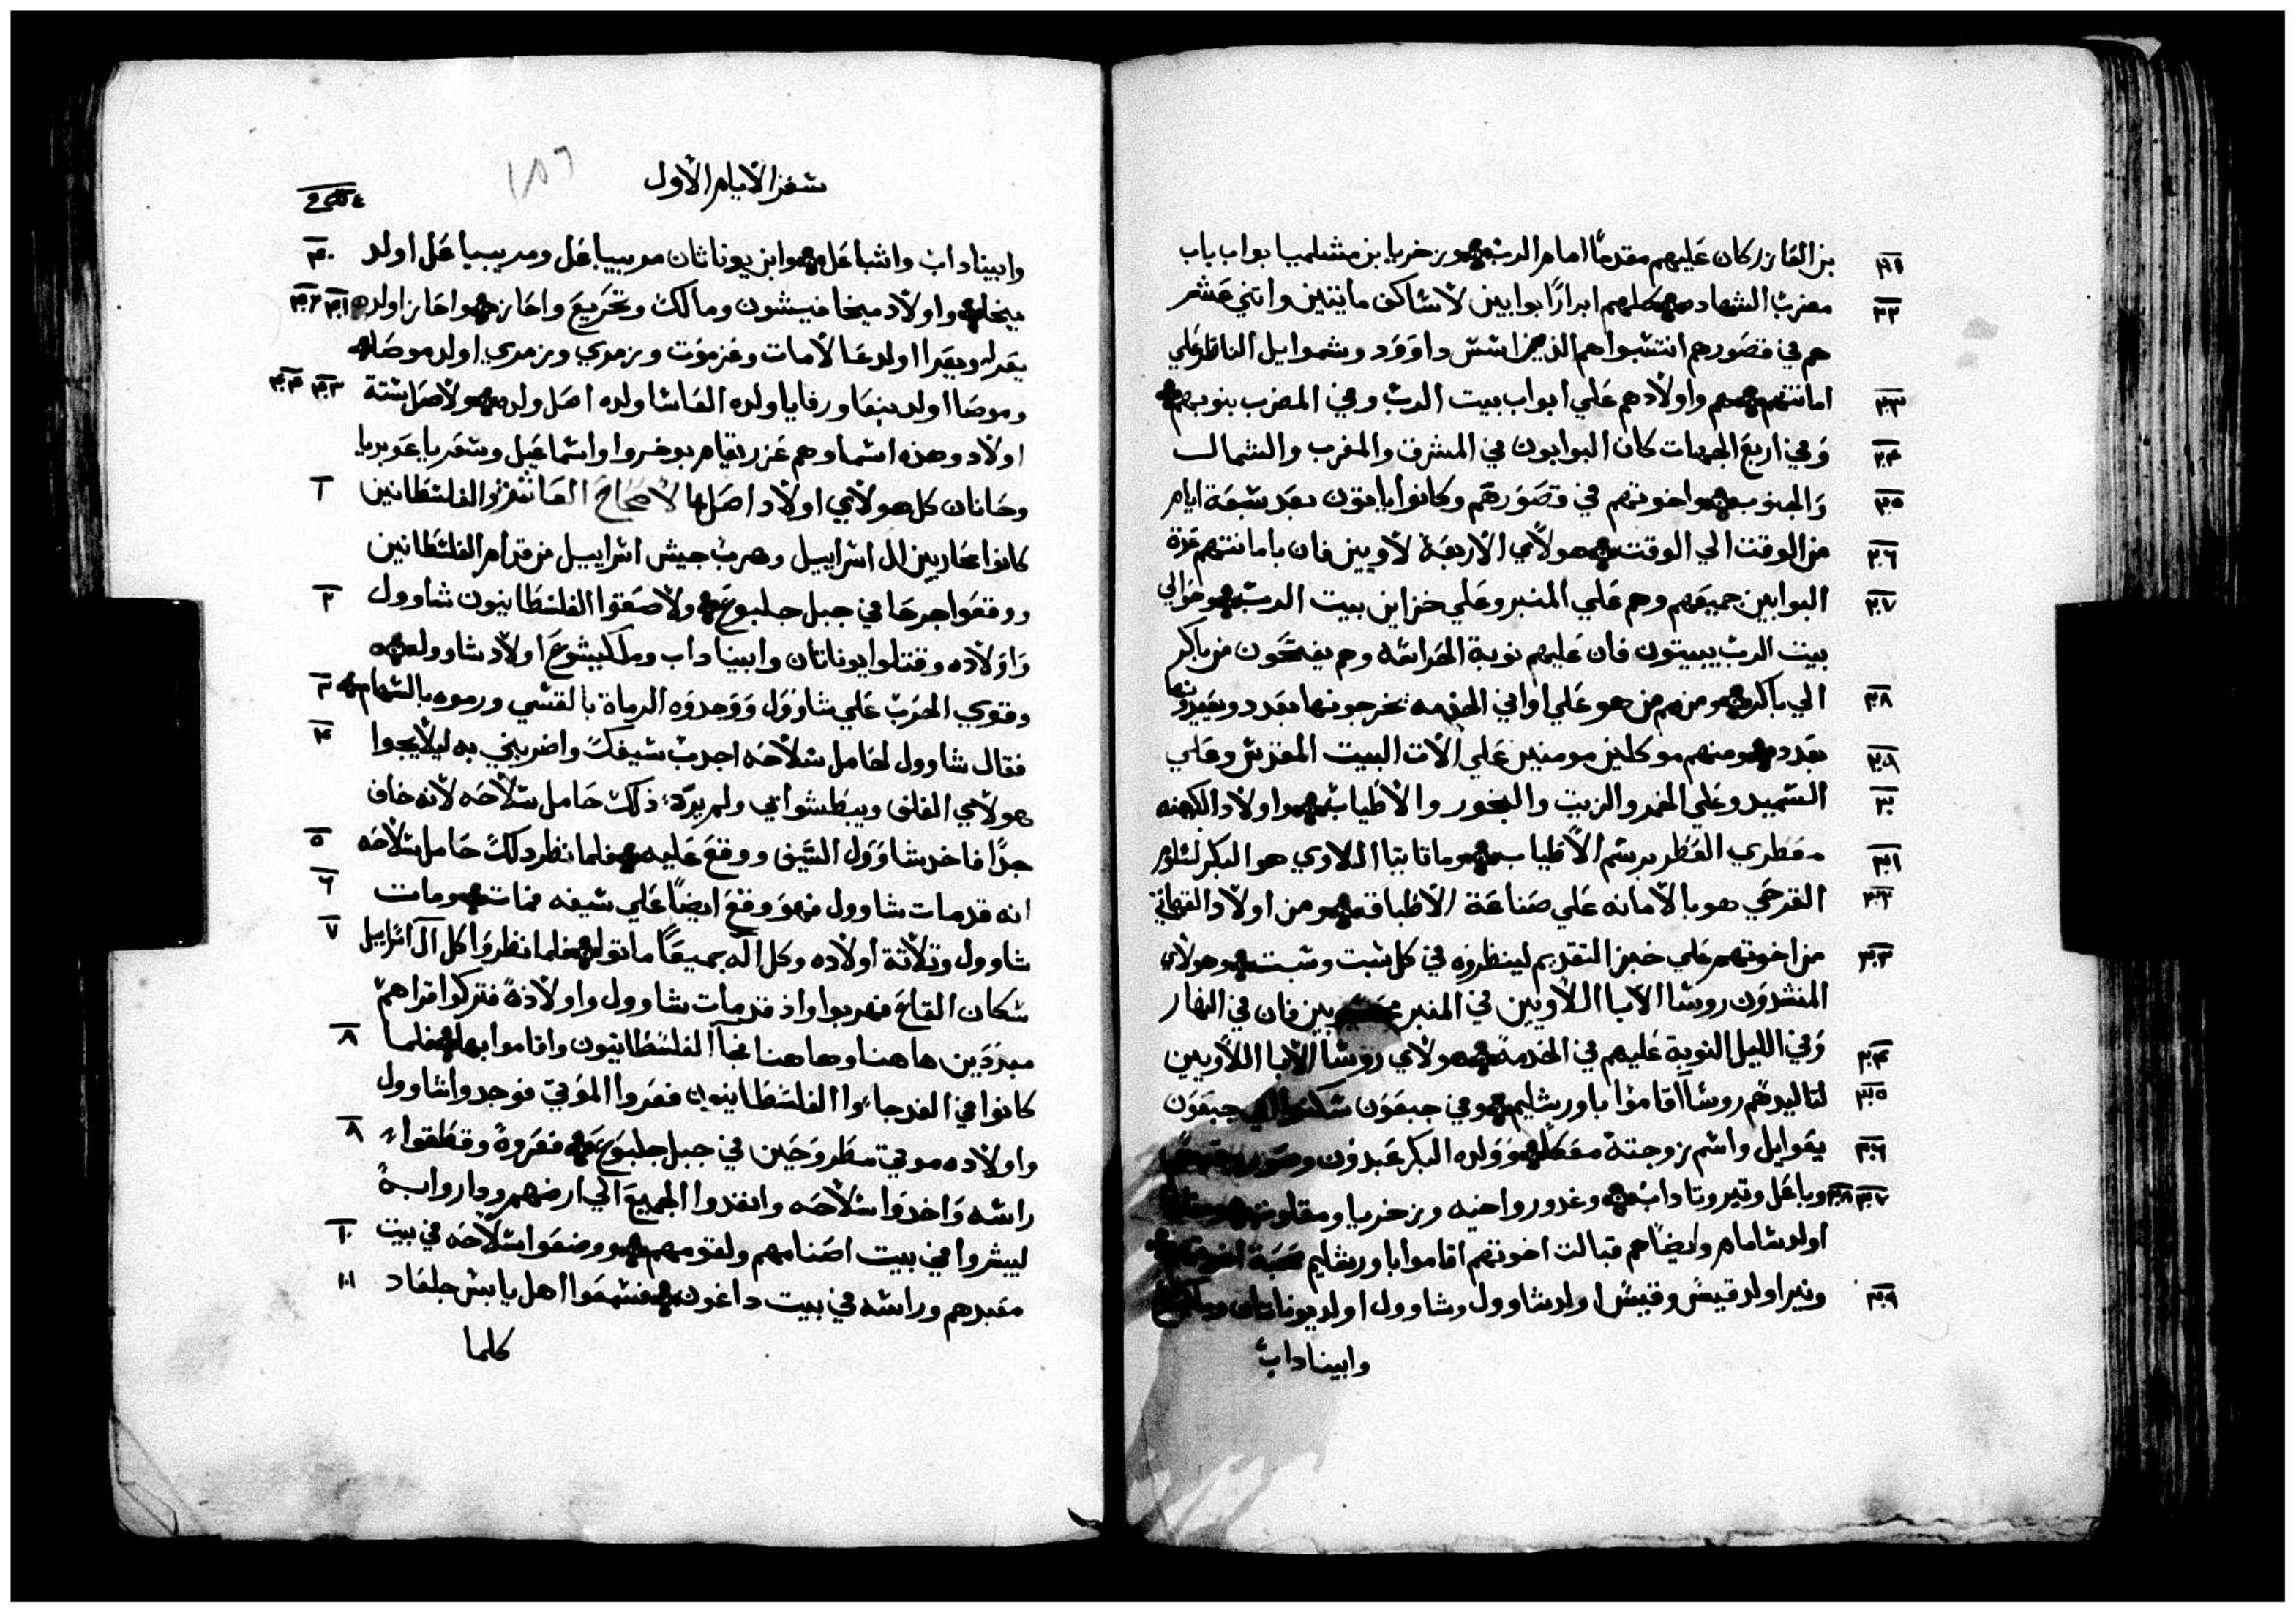 بن العازر كان عليهم مقدما امام الرب وزخريا بن مشلميا بواب باب
مضرب الشهاده كلهم ابرارا بوابين لاساكف مايتين واتني عشر
هم في قصورهم انتسبوا هم الذين اسس داوود وشموايل الناظر علي
امانتهم هم واولادهم علي ابواب بيت الرب وفي المضرب بنوبهم
وفي اربع الجهات كان البوابون في المشرق والمغرب والشمال
والجنوب واخوتهم في قصورهم وكانوا ياتون بعد سبعة ايام
من الوقت الي الوقت هولاي الاربعة لاويين فان بامانتهم عدة
البوابين جميعهم وهم علي المنبر وعلي خزاين بيت الرب وحوالي
بيت الرب يبيتون فان عليهم نوبة الحراسه وهم يفتحون من باكر
الي باكر ومنهم من هو علي اواني الخدمه يخرجونها بعدد ويعيدونها
بعدد ومنهم موكلين مومنين علي الات البيت المقدس وعلي
السميد وعلي الخمر والزيت والبخور والاطياب واولاد الكهنه
معطري العطر برسم الاطياب وماتاتيا اللاوي هو البكر لشلوم
القرحي هو بالامانه علي صناعة الاطباق ومن اولاد القهاتي
من اخوتهم علي خبز التقديم لينظروه في كل سبت وسبت وهولاي
المنشدون روسا الابا اللاويين في المنبر فان في النهار
وفي الليل النوبة عليهم في الخدمة هولاي روسا الابا اللاويين
لتاليدهم روسا اقاموا باورشليم وفي جبعون سكنوا جبعون
يعوايل واسم زوجته معكا وولده البكر عبدون
وباعل وتير وناداب وغدور واخيه وزخريا ومقلوت
اولد شاماهم وايضا هم قبالت اخوتهم اقاموا باورشليم
ونير اولد قيس وقيس اولد شاوول وشاوول اولد يوناتان
وابيناداب
سفر الايام الاول
١٥٦
وابيناداب واشباعل وابن يوناثان مريبيباعل ومريبيباعل اولد
ميخا واولاد ميخا فيشون ومالك وتحريع واحاز واحاز اولد
يعرا ويعرا اولد عالامات وعزموت وزمري وزمري اولد موصا
وموصا اولد بنعا ورفايا ولده العاسا ولده اصل ولده ولاصل ستة
اولاد وهذه اسماوهم عزريقام بوخروا واسماعيل وسعريا عوبريا
وحانان كل هولاي اولاد اصل الاصحاح العاشر والفلسطانين
كانوا محاربين ال اسراييل وهرب جيش اسراييل من قدام الفلسطانين
ووقعوا جرحا في جبل جلبوع ولاصقوا الفلسطانيون شاوول
واولاده وقتلوا يوناتان وابيناداب وملكيشوع اولاد شاوول
وقوي الحرب علي شاوول ووجدوه الرماة بالقسي ورموه بالسهام
فقال شاوول لحامل سلاحه اجدب سيفك واضربني به ليلا يجوا
هولاي الغلف ويبطشوا بي ولم يرد ذلك حامل سلاحه لانه خاف
جدا فاخد شاوول السيف ووقع عليه فلما نظر دلك حامل سلاحه
انه قد مات شاوول فهو وقع ايضا علي سيفه فمات ومات
شاوول وتلاتة اولاده وكل اله جميعا ماتوا فلما نظروا كل ال اسراييل
سكان القاع فهربوا واذ قد مات شاوول واولاده فتركوا قراهم
مبددين هاهنا وهاهنا فجا الفلسطانيون واقاموا بها فلما
كانوا في الغد جاوا الفلسطانيون فعروا الموتي فوجدوا شاوول
واولاده موتي مطروحين في جبل جلبوع فعروه وقطعوا
راسه واخدوا سلاحه وانفدوا الجميع الي ارضهم وداروا به
ليبشروا في بيت اصنامهم ولقومهم ووضعوا سلاحه في بيت
معبدهم وراسه في بيت داغون فسمعوا اهل يابيس جلعاد
كلما